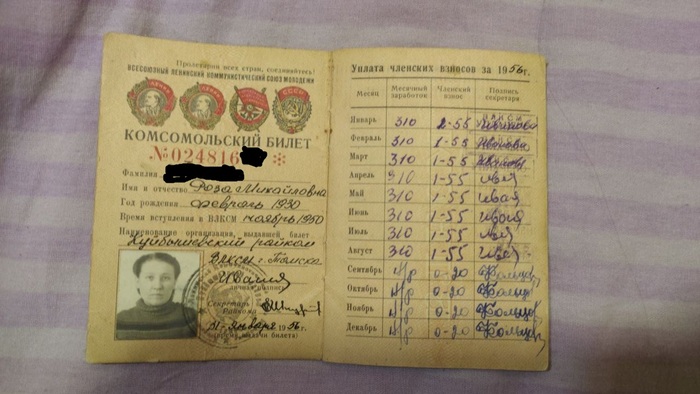 Пролетарии всех стран, соединяйтесь!
ВСЕСОЮЗНЫЙ ЛЕНИНСКИЙ КОММУНИСТИЧЕСКИЙ СОЮЗ МОЛОДЕЖИ
КОМСОМОЛЬСКИЙ БИЛЕТ
№ 024816
Фамилия
Имя и отчество Роза Михайловна
Год рождения февраль 1930
Время вступления в ВЛКСМ ноябрь 1950
Наименование организации, выдавшей билет
Куйбышевский райком
ВЛКСМ г. Томска
личная подпись
Секретарь
Райкома
31 января 1956 г.
(время выдачи билета)
Уплата членских взносов за 1956 г.
Месяц Месячный заработок Членский взнос Подпись секретаря
Январь 310 2-55
Февраль 310 1-55
Март 310 1-55
Апрель 310 1-55
Май 310 1-55
Июнь 310 1-55
Июль 310 1-55
Август 310 1-55
Сентябрь н/р 0-20
Октябрь н/р 0-20
Ноябрь н/р 0-20
Декабрь н/р 0-20